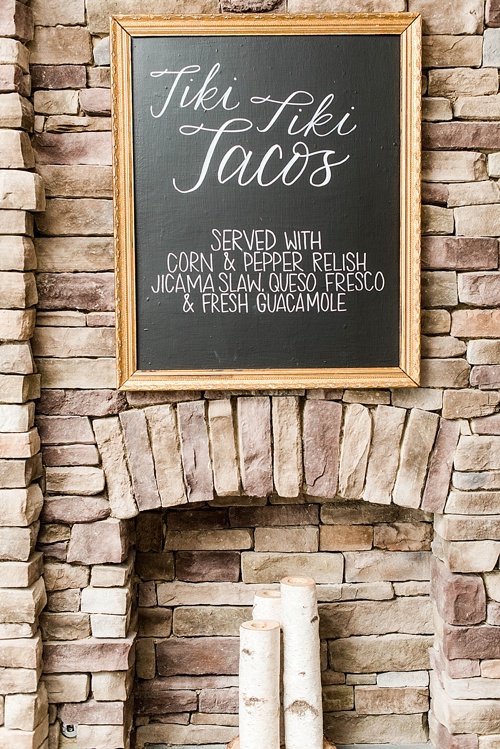 Tiki Tiki
Tacos
SERVED WITH
CORN & PEPPER RELISH
JICAMA SLAW, QUESO FRESCO
& FRESH GUACAMOLE